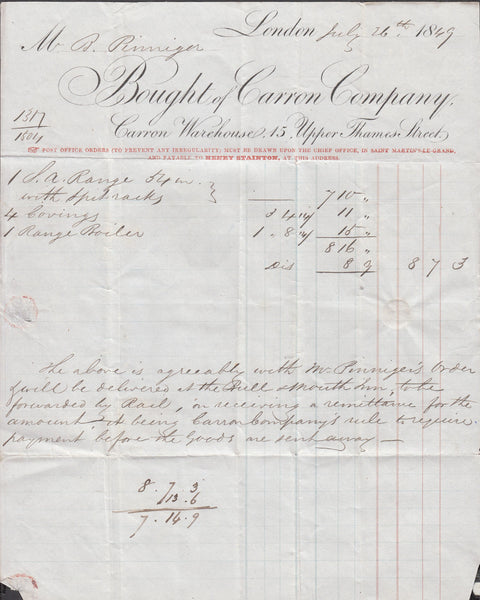 London July 26th 1849
Mr B. Pinniger
Bought of Carron Company,
1317
1504
Carron Warehouse, 15, Upper Thames Street,
POST OFFICE ORDERS (TO PREVENT ANY IRREGULARITY) MUST BE DRAWN UPON THE CHIEF OFFICE, IN SAINT MARTIN'S-LE-GRAND,
AND PAYABLE TO HENRY STAINTON, AT THIS ADDRESS.
1 S.a. Range 34 in.
with Spitracks 7 10 "
4 Covings 3 4 11 "
1 Range Boiler 1 . 8 15 "
8 16 "
Dis 8 9 8 7 3
The above is agreeably with Mr Pinniger's Order
& will be delivered at the Bull & Mouth Inn, to be
forwarded by Rail, on receiving a remittance for the
amount it being Carron Company's rule to require
payment before the Goods are sent away —
8 . 7 . 3
13 . 6
7 . 14 . 9